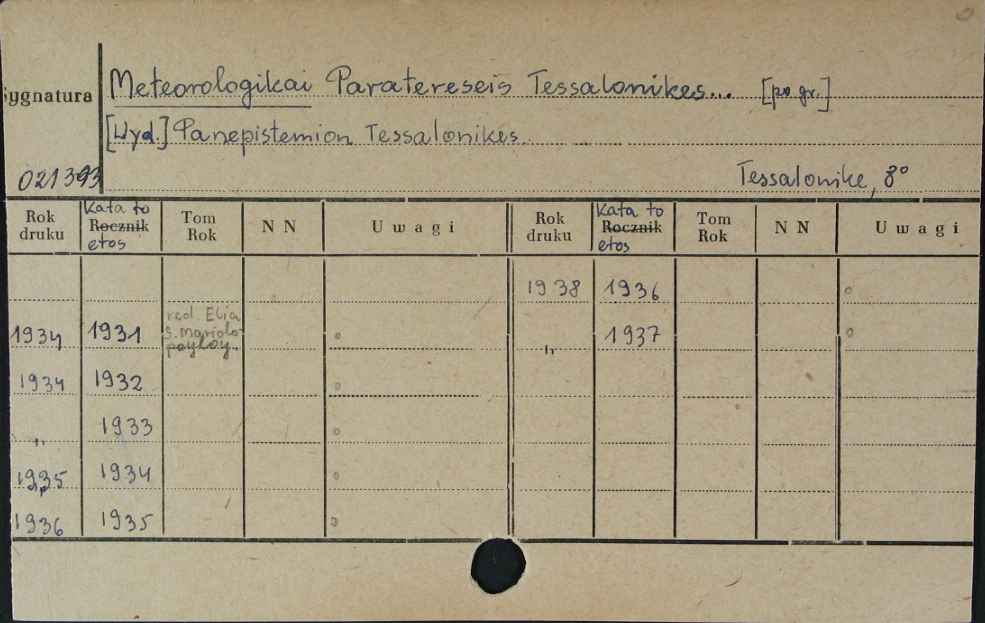 Meteorologikai Paratereseis Tessalonikes... [po gr.]
ygnatura
[Wyd.] Panepistemion Tessalonikes.
021393 Tessalonike, 8°
Rok druku Kata to Rocznik etos Tom Rok NN Uwagi Rok druku Kata to Rocznik etos Tom Rok NN Uwagi
1938 1936
1934 1931 red. Elia S. Mariolopoyloy.. „ 1937
1934 1932
„ 1933
1935 1934
1936 1935